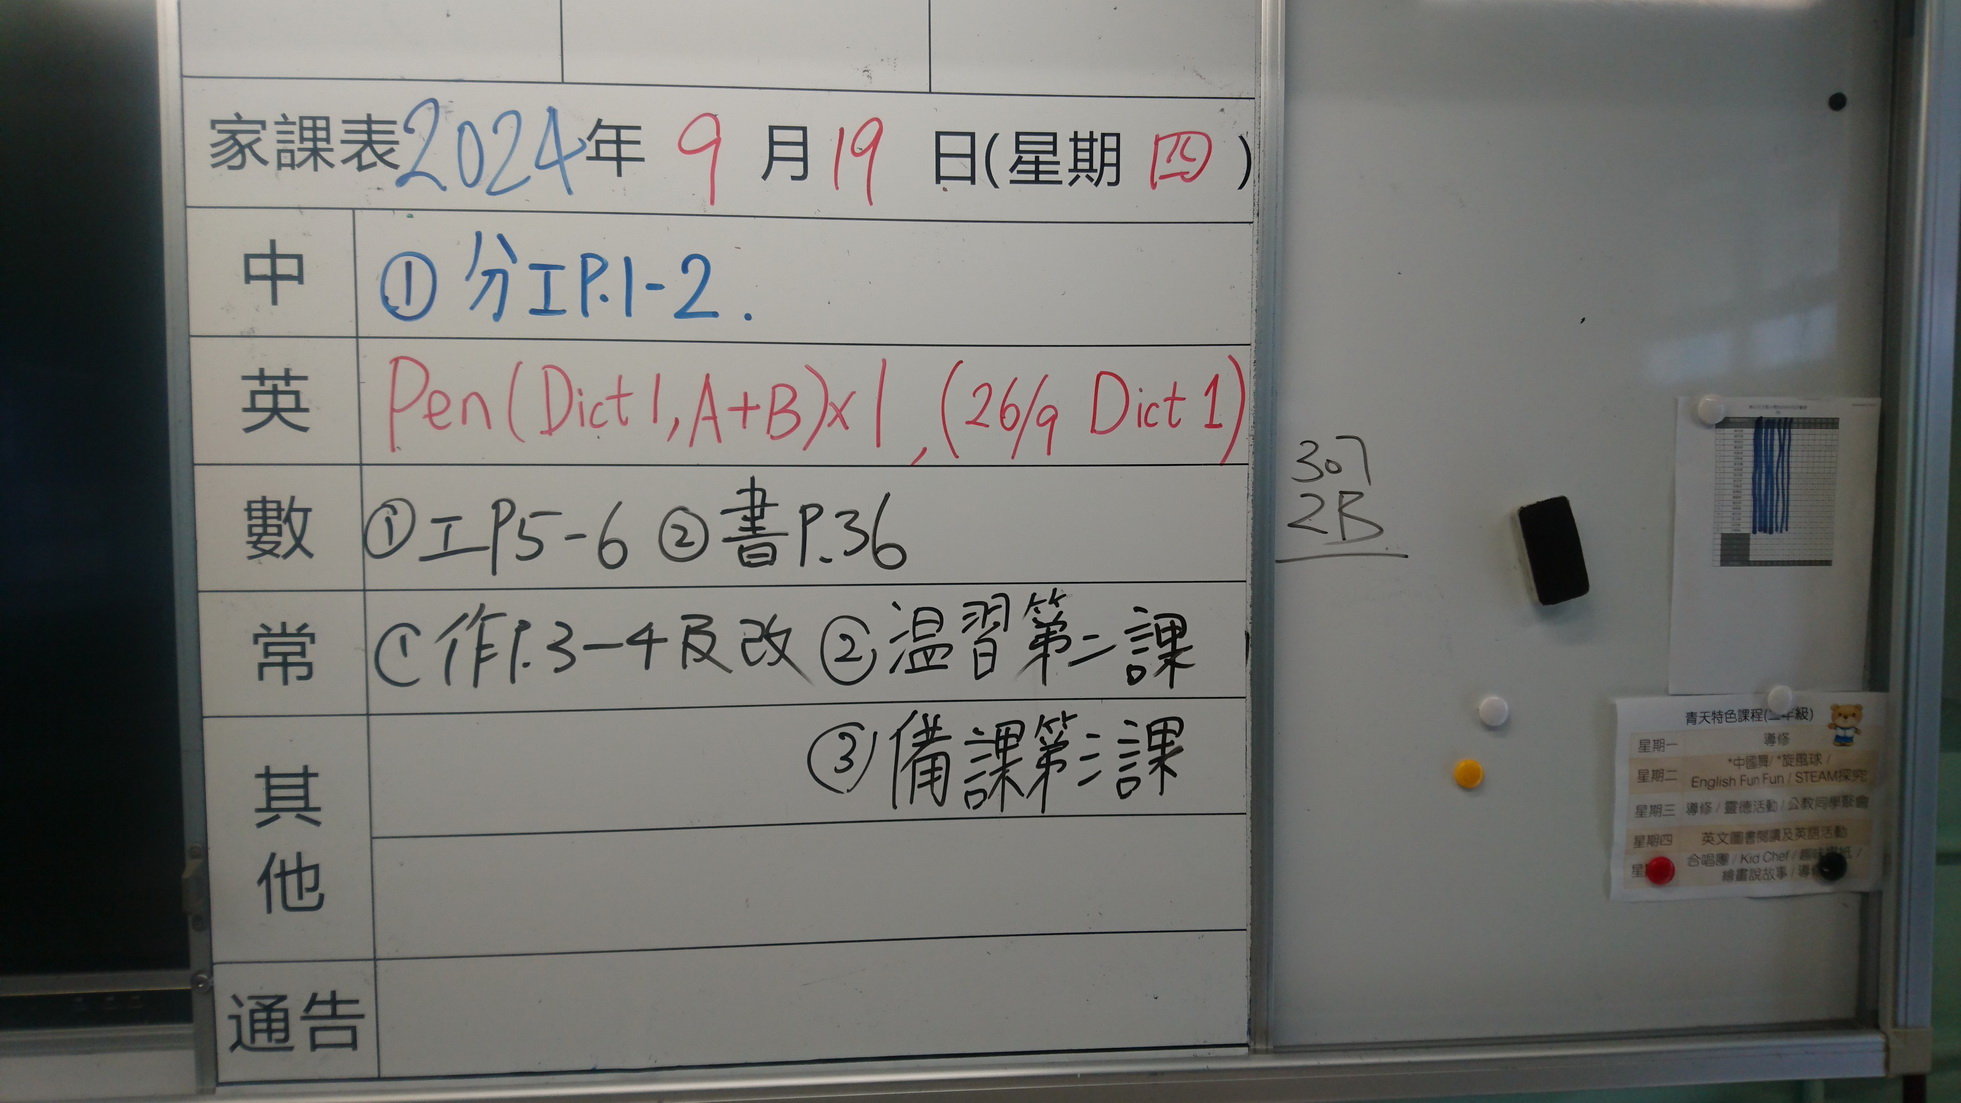 家課表2024年 9 月 19 日(星期 四 )
中 ① 分工P.1-2.
英 Pen(Dict 1, A+B)x1, (26/9 Dict 1)
數 ①工P5-6 ②書P.36
常 ①作P.3-4及改 ②温習第二課
③備課第三課
其他
通告
307
2B
青天特色課程(二年級)
星期一 導修
星期二 *中國舞/ *旋風球 / English Fun Fun / STEAM探究
星期三 導修 / 靈德活動 / 公教同學聚會
星期四 英文圖書閱讀及英語活動
合唱團 / Kid Chef /
繪畫說故事 /